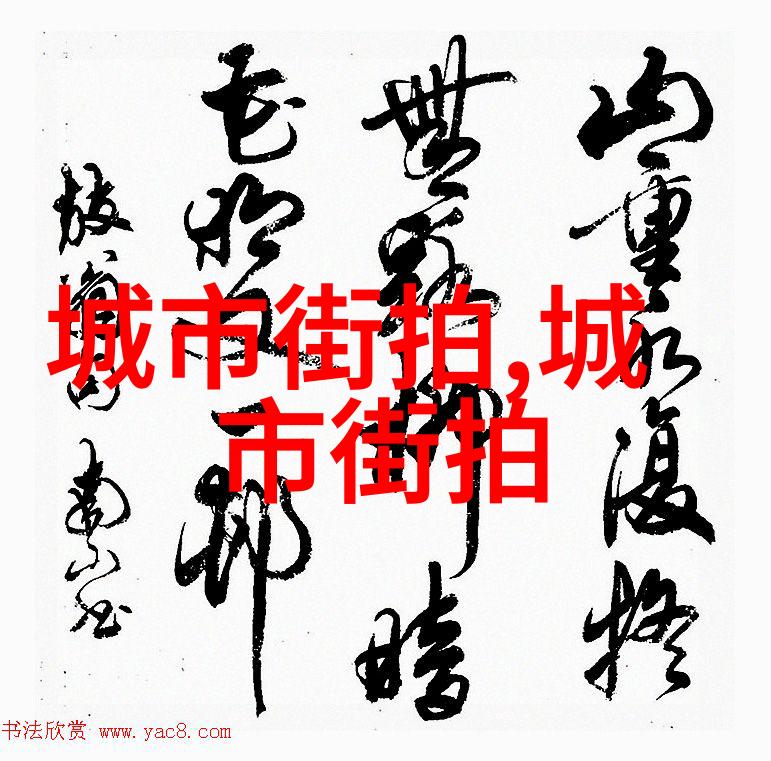 山重水復疑
無路柳暗
花明又一邨
放翁句
城市街拍,城
市街拍
书法欣赏 www.yac8.com